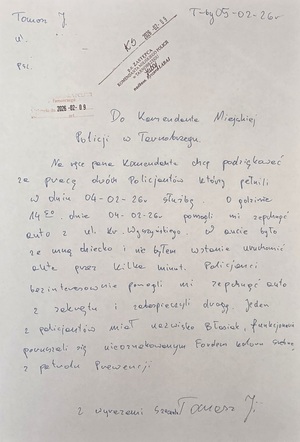 Tomasz J
T-bg 05-02-26r
ul.
KS 2026-02-09
I-SZY ZASTĘPCA
KOMENDANTA MIEJSKIEGO
2026-02-09
Do Komendanta Miejskiej
Policji w Tarnobrzegu.
Na ręce pana Komendanta chcę podziękować
za pracę dwóch Policjantów którzy pełnili
w dniu 04-02-26r służbę. O godzinie
14 dnia 04-02-26r pomogli mi zepchnąć
auto z ul. Kr. Wyszyńskiego. W aucie było
ze mną dziecko i nie byłem w stanie uruchomić
auta przez kilka minut. Policjanci
bezinteresownie pomogli mi zepchnąć auto
z zakrętu i zabezpieczyli drogę. Jeden
z policjantów miał nazwisko Błasiak, funkcjonariusze
poruszali się nieoznakowanym Fordem koloru
z patrolu Prewencji.
Z wyrazami Tomasz J